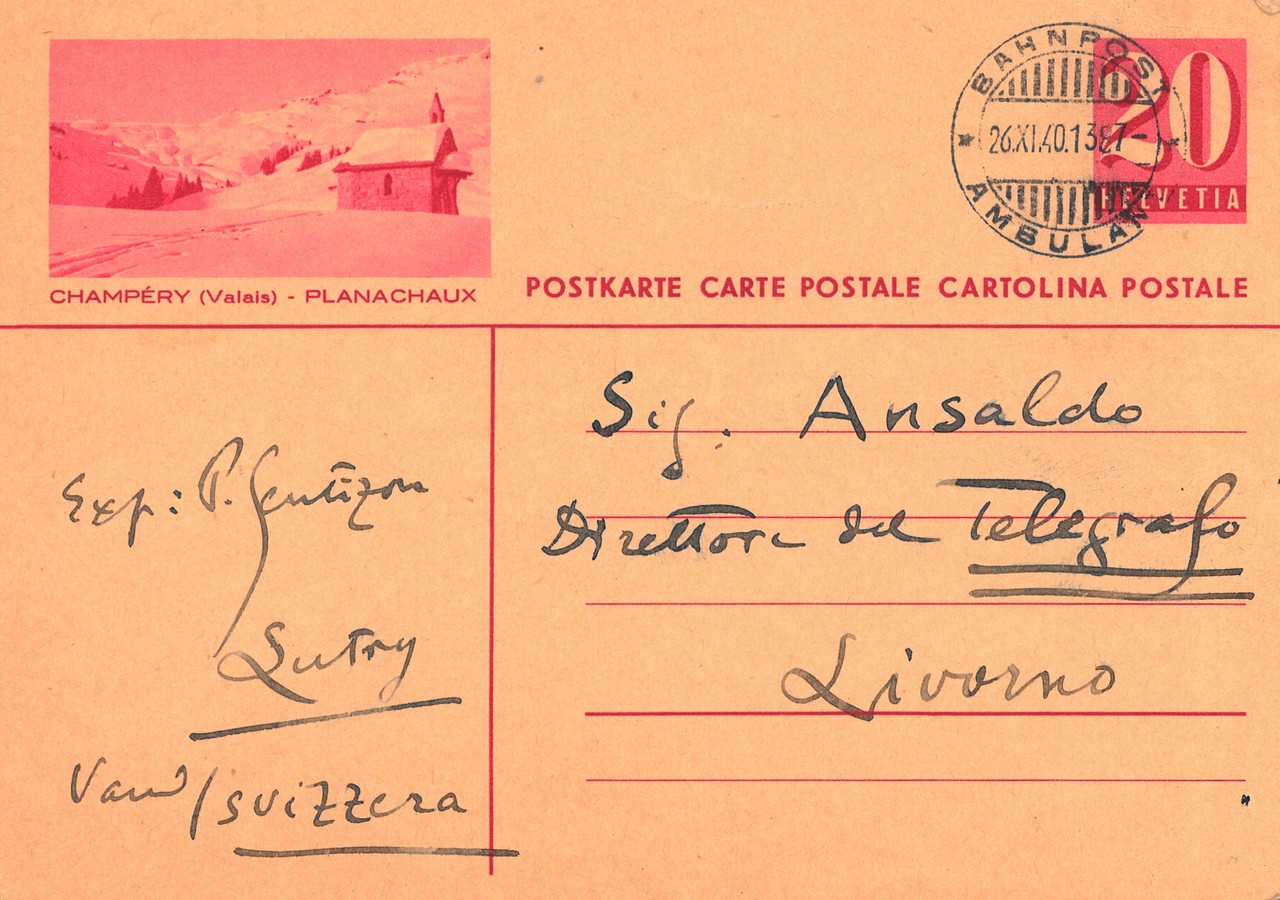 BAHNPOST
26.XI.40.13
AMBULANT
20
HELVETIA
CHAMPÉRY (Valais) - PLANACHAUX
POSTKARTE CARTE POSTALE CARTOLINA POSTALE
Exp: P. Gentizon
Lutry
Vaud / svizzera
Sig. Ansaldo
Direttore del Telegrafo
Livorno